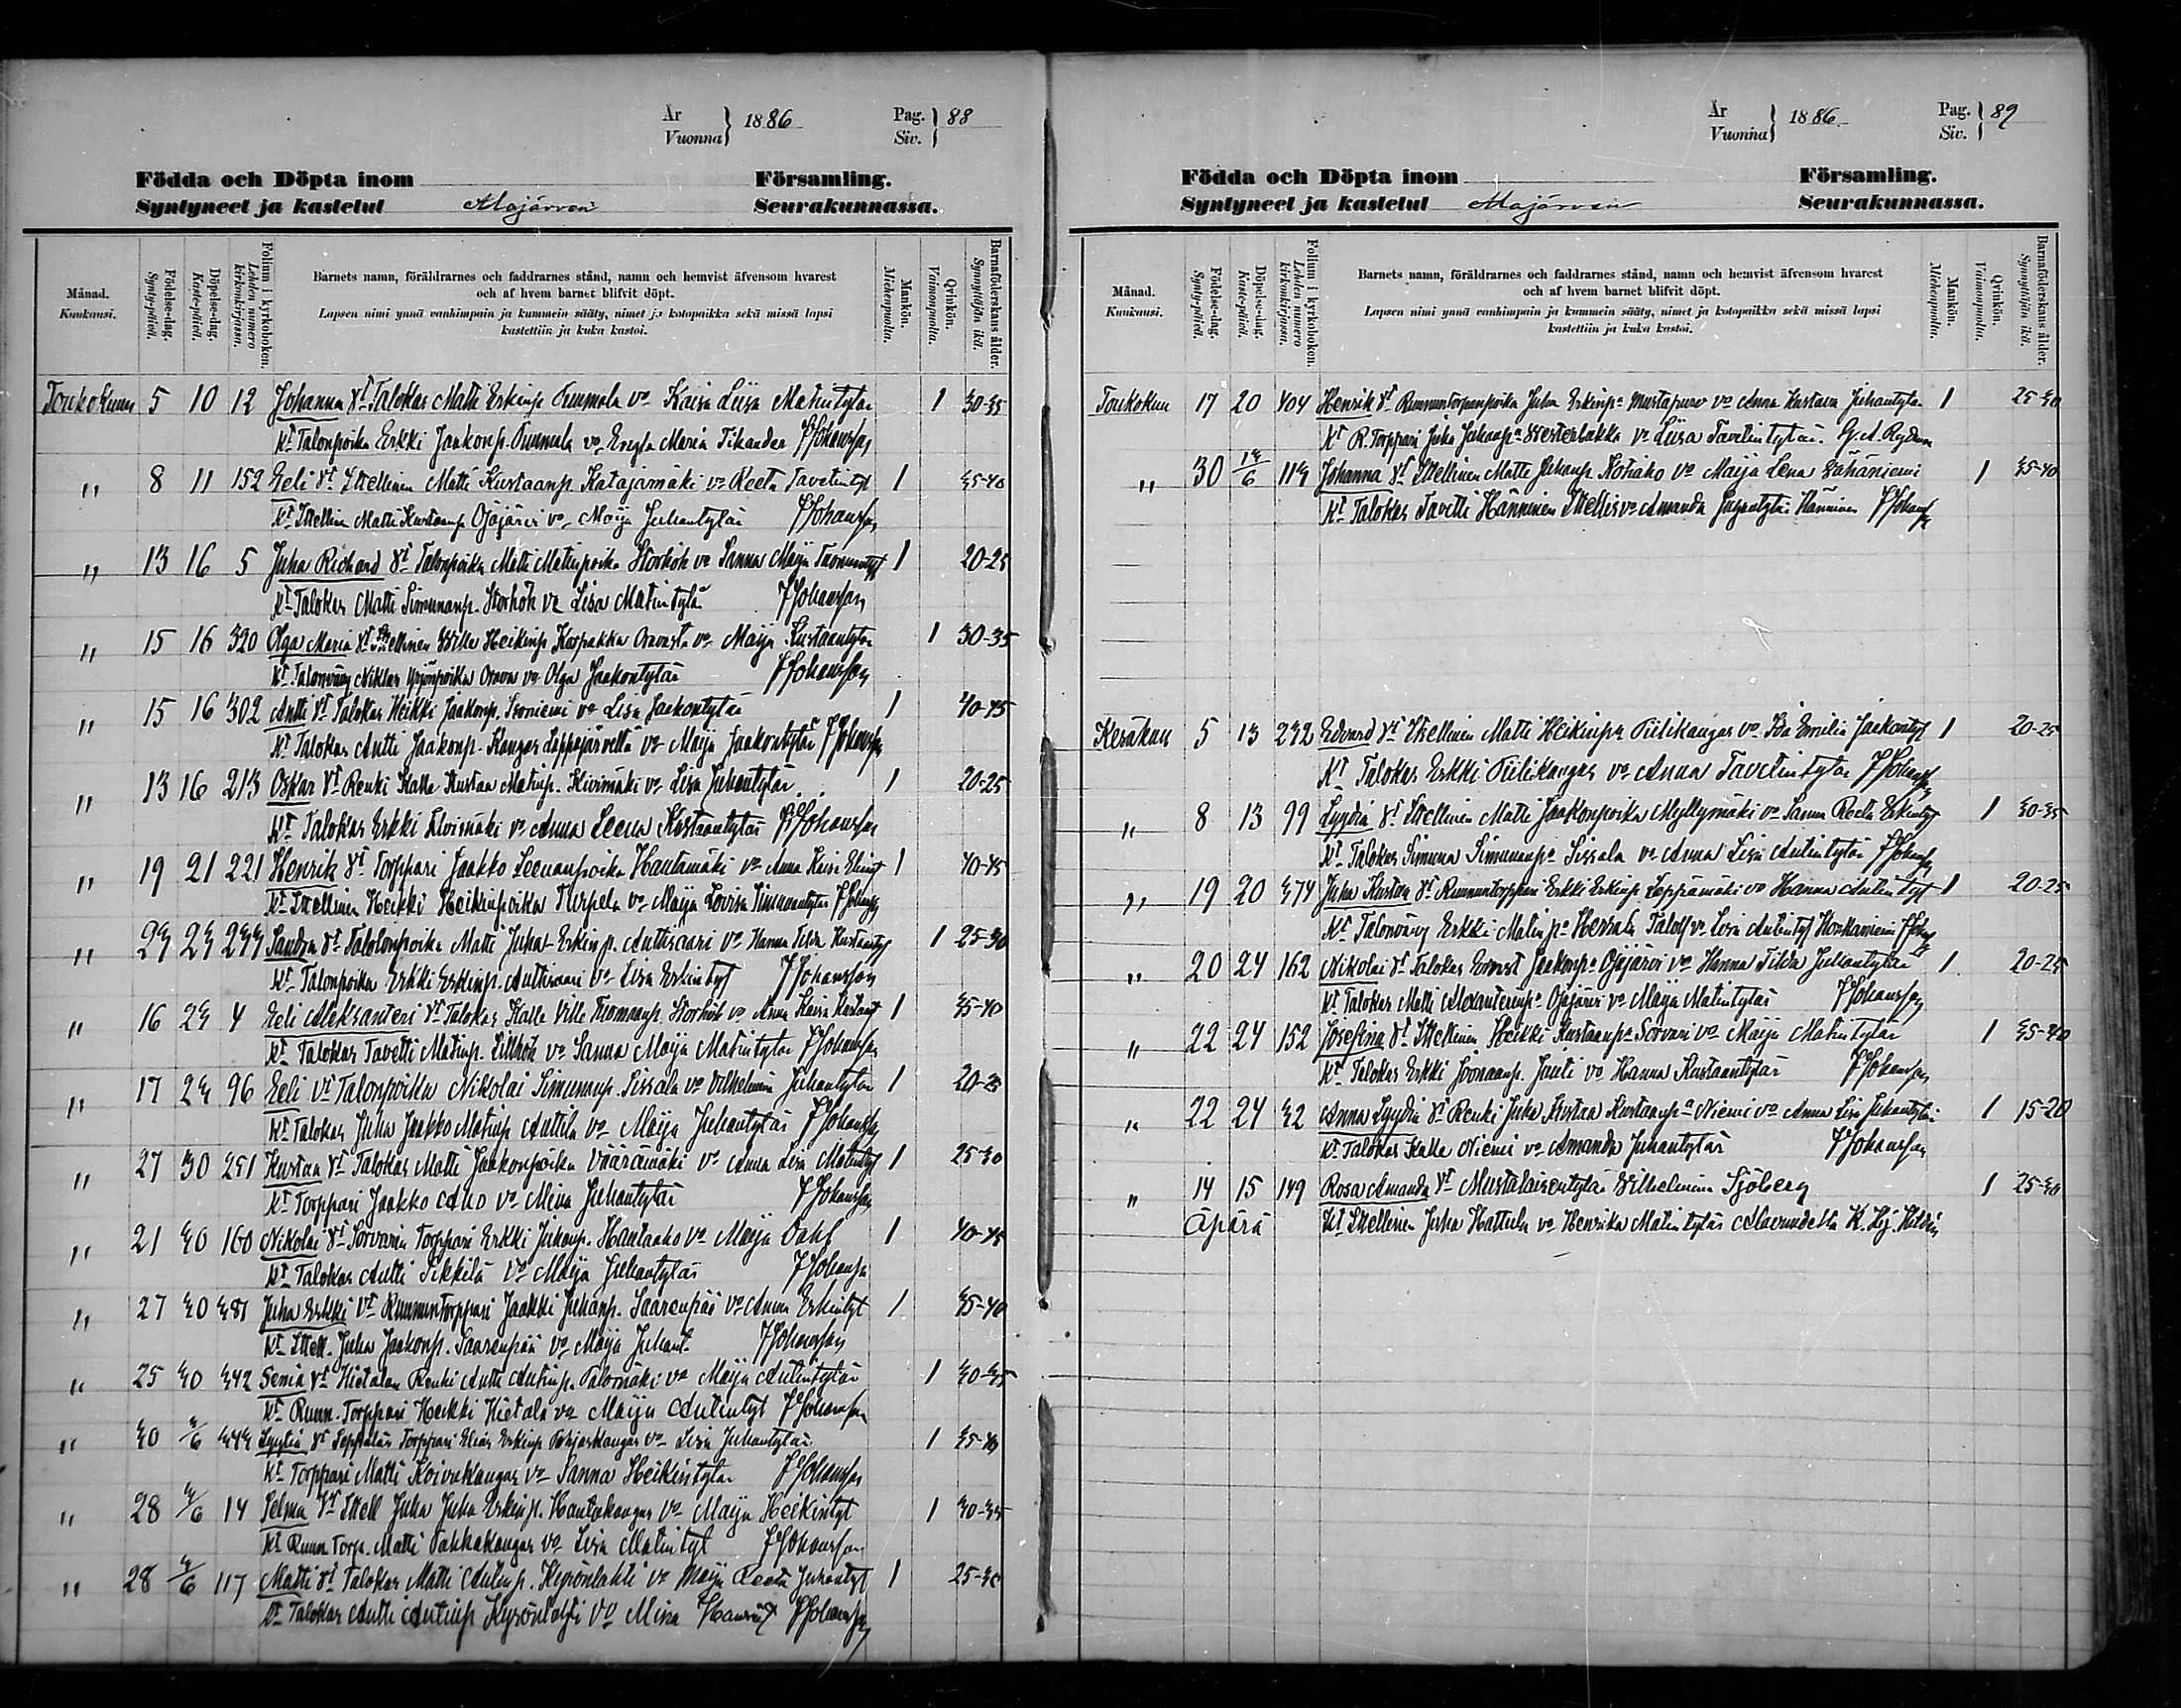 År
Vuonna } 1886
Pag.
Siv. } 88
Födda och Döpta inom Församling.
Syntyneet ja kastetut Alajärven Seurakunnassa.
Månad.
Kuukausi.
Födelse-dag.
Synty-päivä.
Döpelse-dag.
Kaste-päivä.
Folium i kyrkoboken.
Lehden numero kirkonkirjassa.
Barnets namn, föräldrarnes och faddrarnes stånd, namn och hemvist äfvensom hvarest
och af hvem barnet blifvit döpt.
Lapsen nimi ynnä vanhimpain ja kummein sääty, nimet ja kotopaikka sekä missä lapsi
kastettiin ja kuka kastoi.
Mankön.
Miehenpuolta.
Qvinkön.
Vaimonpuolta.
Barnaföderskans ålder.
Synnyttäjän ikä.
Toukokuun 5 10 12 Johanna Vt Talokas Matti Erkinp. vo Kaisa Liisa Matintytär 1 30-35
Kt Talonpoika Erkki Jaakonp. vo Maria Tikander JJohansson
" 8 11 152 Eeli Vt Itsellinen Matti Kustaanp. Katajamäki vo Reeta Tavetintyt 1 35-40
Kt Itsellinen Matti Kustaanp Ojajärvi vo Maija Juhantytär JJohansson
" 13 16 5 Juha Richard Vt Talonpoika Matti Matinpoika Storhök vo Sanna Maija 1 20-25
Kt Talokas Matti Simunanp. Storhök vo Lisa Matintytär JJohansson
" 15 16 320 Olga Maria Vt Itsellinen Wille Heikinp Korpakka vo Maija Kustaantytär 1 30-35
Kt Talonväng Niklas Yrjönpoika Orava vo Olga Jaakontytär JJohansson
" 15 16 302 Antti Vt Talokas Heikki Jaakonp. vo Lisa Jaakontytär 1 40-45
Kt Talokas Antti Jaakonp. Kangas Lappajärveltä vo Maija Jaakontytär JJohansson
" 13 16 213 Oskar Vt Renki Kalle Kustaa Matinp. Kivimäki vo Lisa Juhantytär 1 20-25
Kt Talokas Erkki Kivimäki vo Anna Leena Kustaantytär JJohansson
" 19 21 221 Henrik Vt Torppari Jaakko Leenanpoika Hautamäki vo Anna Kaisa 1 40-45
Kt Itsellinen Heikki Heikinpoika Turpela vo Maija Lovisa Simunantytär JJohansson
" 23 23 233 Sandra Vt Talolonpoika Matti Juha Erkinp. Anttisaari vo Hanna Tilda Kustantyt 1 25-30
Kt Talonpoika Erkki Erkinp. Anttisaari vo Lisa Erkintyt JJohansson
" 16 23 4 Eeli Aleksanteri Vt Talokas Kalle Ville Tuomaanp. Storhök vo Anna Kaisa Kustaant 1 35-40
Kt Talokas Tavetti Matinp. Lillhök vo Sanna Maija Matintytär JJohansson
" 17 23 96 Eeli Vt Talonpoika Nikolai Simunanp. Sissala vo Vilhelmiina Juhantytär 1 20-25
Kt Talokas Juha Jaakko Matinp Anttila vo Maija Juhantytär JJohansson
" 27 30 251 Kustaa Vt Talokas Matti Jaakonpoika Vääräniemi vo Anna Lisa Matintyt 1 25-30
Kt Torppari Jaakko Aho vo Mina Juhantytär JJohansson
" 21 30 160 Nikolai Vt Sorvarin Torppari Erkki Juhanp. Hautaaho vo Maija Dahl 1 40-45
Kt Talokas Antti Pikkilä vo Maija Juhantytär JJohansson
" 27 30 381 Juha Erkki Vt Ruununtorppari Jaakki Juhanp. Saarenpää vo Anna Erkintyt 1 35-40
Kt Itsell. Juha Jaakonp. Saarenpää vo Maija Juhant. JJohansson
" 25 30 342 Senia Vt Hietalan Renki Antti Antinp. Palomäki vo Maija Antintytär 1 30-35
Kt Ruun. Torppari Heikki Hietala vo Maija Antintyt JJohansson
" 30 3/6 343 Lyytia Vt Seppälän Torppari Elias Erkinp Pohjaskangas vo Lisa Juhantytär 1 35-40
Kt Torppari Matti Koivukangas vo Sanna Heikintytär JJohansson
" 28 3/6 14 Selma Vt Itsell Juha Juha Erkinp. Hautakangas vo Maija Heikintyt 1 30-35
Kt Ruun Torp. Matti Pahkakangas vo Lisa Matintyt JJohansson
" 28 3/6 117 Matti Vt Talokas Matti Antinp. Kyrönlahti vo Maija Reeta Juhantyt 1 25-30
Kt Talokas Antti Antinp Kyrönlahti vo Mina JJohansson
År
Vuonna } 1886
Pag.
Siv. } 89
Födda och Döpta inom Församling.
Syntyneet ja kastetut Alajärven Seurakunnassa.
Månad.
Kuukausi.
Födelse-dag.
Synty-päivä.
Döpelse-dag.
Kaste-päivä.
Folium i kyrkoboken.
Lehden numero kirkonkirjassa.
Barnets namn, föräldrarnes och faddrarnes stånd, namn och hemvist äfvensom hvarest
och af hvem barnet blifvit döpt.
Lapsen nimi ynnä vanhimpain ja kummein sääty, nimet ja kotopaikka sekä missä lapsi
kastettiin ja kuka kastoi.
Mankön.
Miehenpuolta.
Qvinkön.
Vaimonpuolta.
Barnaföderskans ålder.
Synnyttäjän ikä.
Toukokuu 17 20 404 Henrik Vt Ruununtorpanpoika Juha Erkinpa Mustapuro vo Anna Kustava Juhantytär 1 25-30
Kt R. Torppari Juha Juhanpa Westerbakka vo Liisa Tavetintytär. G. A. Rydman
" 30 13/6 113 Johanna Vt Itsellinen Matti Juhanp. Kotiaho vo Maija Lena Vähäniemi 1 35-40
Kt Talokas Tavetti Hänninen Itsellis vo Amanda Juhantytär Hänninen JJohansson
Kesäkuu 5 13 232 Edvard Vt Itsellinen Matti Heikinpa Piilikangas vo Ida Emilia Jaakontyt 1 20-25
Kt Talokas Erkki Piilikangas vo Anna Tavetintytär JJohansson
" 8 13 99 Lyydia Vt Itsellinen Matti Jaakonpoika Myllymäki vo Sanna Reeta Erkintyt 1 30-35
Kt Talokas Simuna Simunanpa Sissala vo Anna Lisa Antintytär JJohansson
" 19 20 374 Juha Kustaa Vt Ruununtorppari Erkki Erkinp. Leppämäki vo Hanna Antintyt 1 20-25
Kt Talonväng Erkki Matinpa vo Lisa Antintyt JJohansson
" 20 24 162 Nikolai Vt Talokas Ernest Jaakonpa Ojajärvi vo Hanna Tilda Juhantytär 1 20-25
Kt Talokas Matti Alexanterinpa Ojajärvi vo Maija Matintytär JJohansson
" 22 24 152 Josefina Vt Itsellinen Heikki Kustaanpa Sorvari vo Maija Matintytär 1 35-40
Kt Talokas Erkki Joonaanp. Jauti vo Hanna Kustaantytär JJohansson
" 22 24 32 Anna Lyydia Vt Renki Juha Kustaa Kustaanpa Niemi vo Anna Lisa Juhantytär 1 15-20
Kt Talokas Kalle Niemi vo Amanda Juhantytär JJohansson
" 14 15 149 Rosa Amanda Vt Mustalaisentytär Wilhelmina Sjöberg 1 25-30
Äpärä Kt Itsellinen Juha Hattula vo Henrika Matintytär K. Hj. Hildén